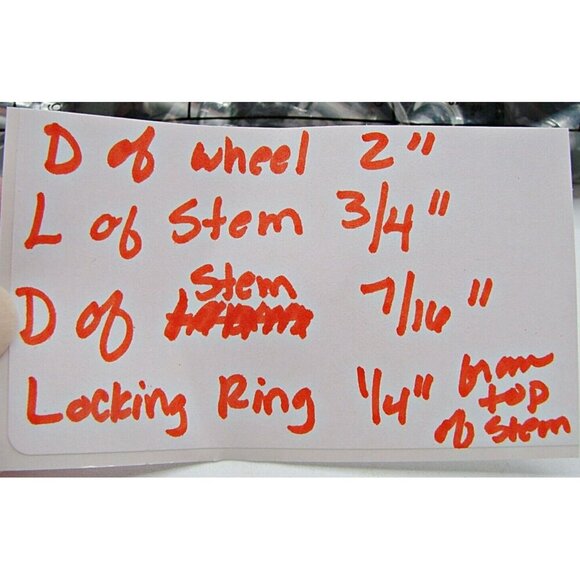 D of wheel 2"
L of Stem 3/4"
D of Stem 7/16"
Locking Ring 1/4" from top of stem